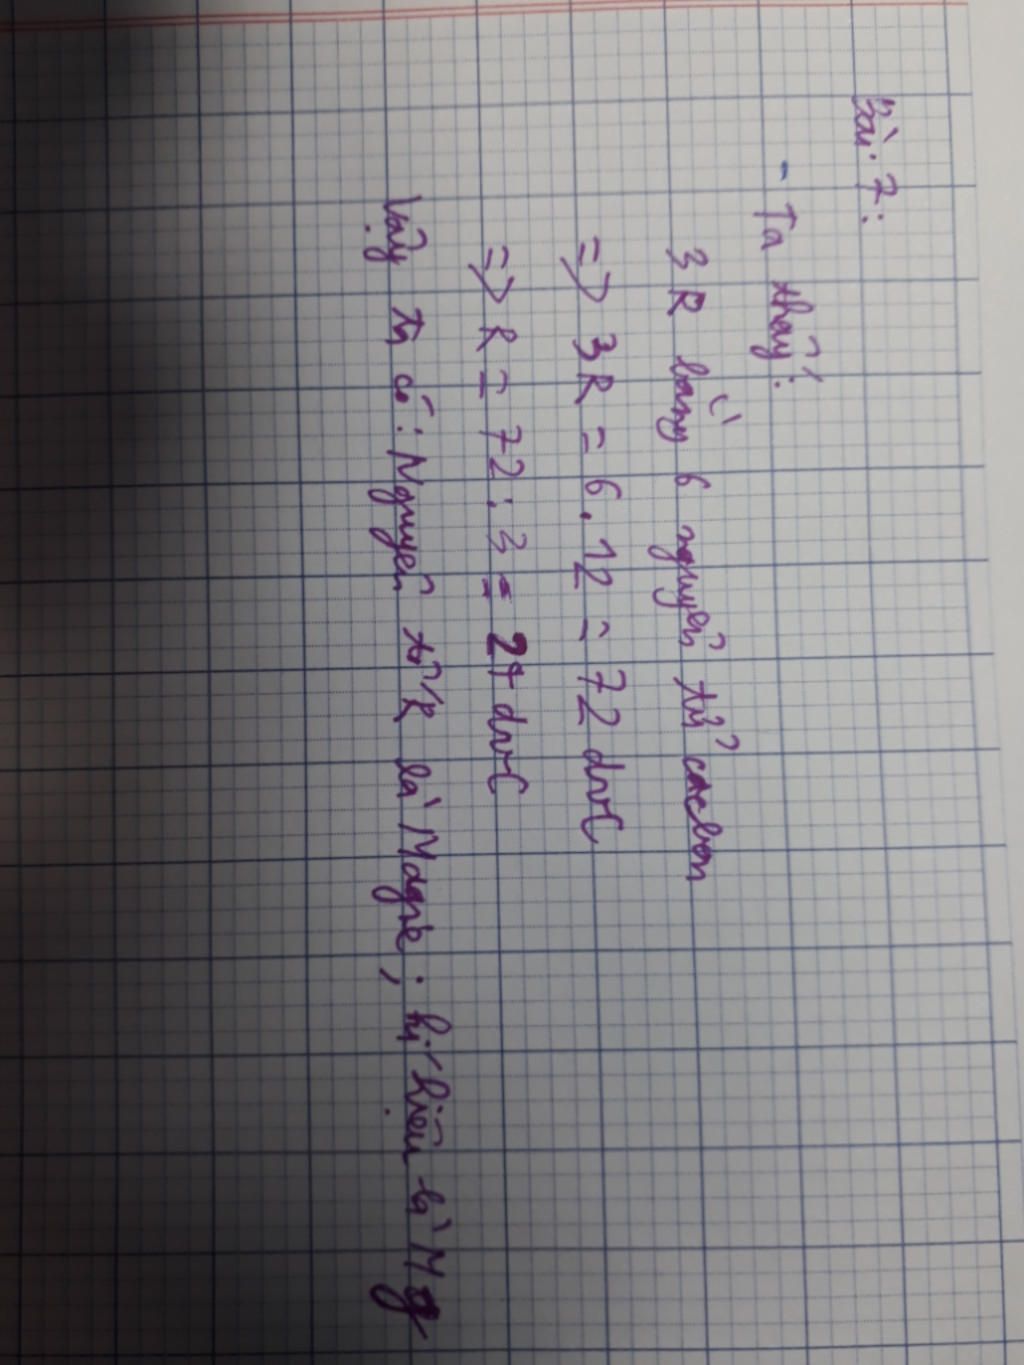 Bài 7:
- Ta thấy:
3R bằng 6 nguyên tử cacbon
=> 3R = 6.12 = 72 đvC
=> R = 72 : 3 = 24 đvC
Vậy ta có: Nguyên tố R là Magiê; kí hiệu là Mg